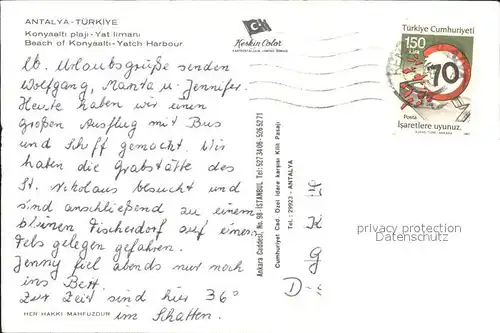 ANTALYA - TÜRKİYE
Konyaaltı plajı - Yat limanı
Beach of Konyaaltı - Yatch Harbour
Lb. Urlaubsgrüße senden
Wolfgang, Manta u. Jennifer.
Heute haben wir einen
großen Ausflug mit Bus
und Schiff gemacht. Wir
haben die Grabstätte des
St. Nikolaus besucht und
sind anschließend zu einem
kleinen Fischerdorf auf einem
Fels gelegen gefahren.
Jenny fiel abends nur noch
ins Bett.
Zur Zeit sind hier 36°
im Schatten.
HER HAKKI MAHFUZDUR
Keskin Color
KARTPOSTALCILIK LİMİTED ŞİRKETİ
Ankara Caddesi, No. 98 - İSTANBUL Tel: 527 34 06 - 526 52 71
Cumhuriyet Cad. Özel idare karşısı Kilit Pasajı
Tel.: 29923 - ANTALYA
Türkiye Cumhuriyeti
150
LİRA
70
Posta
İşaretlere uyunuz.
privacy protection
watermark
D-